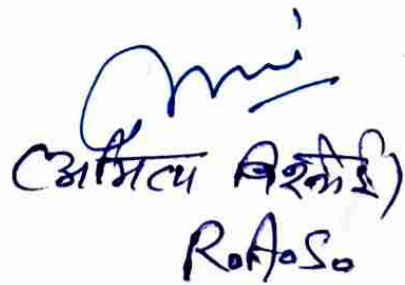 (अमित्य बिश्नोई)
R.A.S.